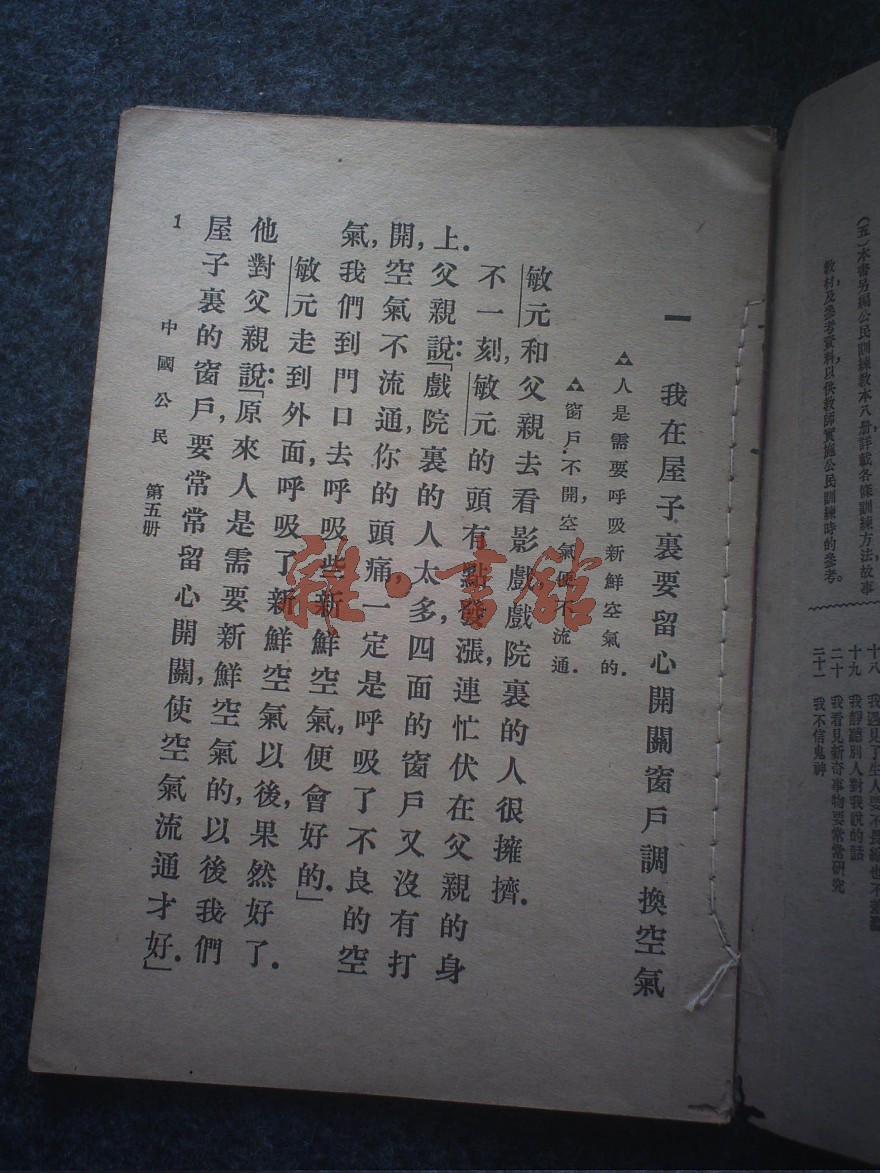 (五)本書另編公民訓練教本八册,詳載各條訓練方法,故事
教材及參考資料,以供教師實施公民訓練時的參考。
十八 我遇見了生人要不畏縮也不羞澀
十九 我靜聽別人對我說的話
二十 我看見新奇事物要常常研究
二十一 我不信鬼神
一 我在屋子裏要留心開關窗戶調換空氣
△人是需要呼吸新鮮空氣的.
△窗戶不開,空氣便不流通.
敏元和父親去看影戲,戲院裏的人很擁擠.
不一刻,敏元的頭有點發漲,連忙伏在父親的身
上.父親說:「戲院裏的人太多,四面的窗戶又沒有打
開,空氣不流通,你的頭痛,一定是呼吸了不良的空
氣,我們到門口去呼吸些新鮮空氣,便會好的.」
敏元走到外面,呼吸了新鮮空氣以後,果然好了.
他對父親說:「原來人是需要新鮮空氣的,以後我們
屋子裏的窗戶,要常常留心開關,使空氣流通才好.」
1 中國公民 第五册
雜·書館